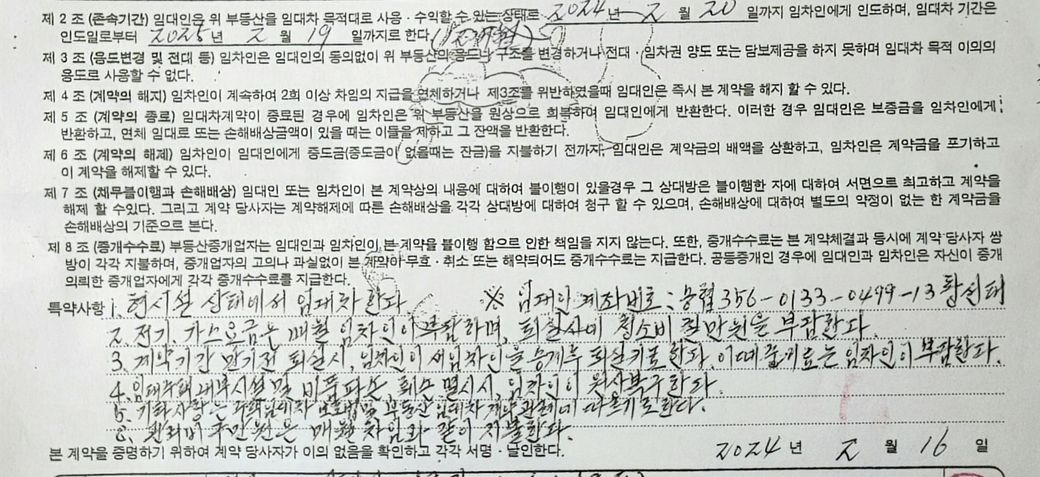 제 2 조 (존속기간) 임대인은 위 부동산을 임대차 목적대로 사용·수익할 수 있는 상태로 2024년 2 월 20 일까지 임차인에게 인도하며, 임대차 기간은
인도일로부터 2025년 2 월 19 일까지로 한다.
제 3 조 (용도변경 및 전대 등) 임차인은 임대인의 동의없이 위 부동산의 용도나 구조를 변경하거나 전대·임차권 양도 또는 담보제공을 하지 못하며 임대차 목적 이외의
용도로 사용할 수 없다.
제 4 조 (계약의 해지) 임차인이 계속하여 2회 이상 차임의 지급을 연체하거나 제3조를 위반하였을때 임대인은 즉시 본 계약을 해지 할 수 있다.
제 5 조 (계약의 종료) 임대차계약이 종료된 경우에 임차인은 위 부동산을 원상으로 회복하여 임대인에게 반환한다. 이러한 경우 임대인은 보증금을 임차인에게
반환하고, 연체 임대료 또는 손해배상금액이 있을 때는 이들을 제하고 그 잔액을 반환한다.
제 6 조 (계약의 해제) 임차인이 임대인에게 중도금(중도금이 없을때는 잔금)을 지불하기 전까지, 임대인은 계약금의 배액을 상환하고, 임차인은 계약금을 포기하고
이 계약을 해제할 수 있다.
제 7 조 (채무불이행과 손해배상) 임대인 또는 임차인이 본 계약상의 내용에 대하여 불이행이 있을경우 그 상대방은 불이행한 자에 대하여 서면으로 최고하고 계약을
해제 할 수있다. 그리고 계약 당사자는 계약해제에 따른 손해배상을 각각 상대방에 대하여 청구 할 수 있으며, 손해배상에 대하여 별도의 약정이 없는 한 계약금을
손해배상의 기준으로 본다.
제 8 조 (중개수수료) 부동산중개업자는 임대인과 임차인이 본 계약을 불이행 함으로 인한 책임을 지지 않는다. 또한, 중개수수료는 본 계약체결과 동시에 계약 당사자 쌍
방이 각각 지불하며, 중개업자의 고의나 과실없이 본 계약이 무효·취소 또는 해약되어도 중개수수료는 지급한다. 공동중개인 경우에 임대인과 임차인은 자신이 중개
의뢰한 중개업자에게 각각 중개수수료를 지급한다.
특약사항 1. 현시설 상태에서 임대차 한다. ※ 임대인 계좌번호: 농협 356-0133-0499-13
2. 전기. 가스요금은 매월 임차인이 부담하며, 퇴실시에 청소비 만원을 부담한다
3. 계약기간 만기전 퇴실시, 임차인이 새임차인을 승계후 퇴실키로 한다. 이때 중개료는 임차인이 부담한다.
4. 임대주택 내부시설 및 비품파손, 훼손 멸실시, 임차인이 원상복구한다.
5. 기타사항은 주택임대차 보호법 및 부동산 임대차 계약 관례에 따르기로한다.
6. 관리비 만원은 매월 차임과 같이 지불한다.
본 계약을 증명하기 위하여 계약 당사자가 이의 없음을 확인하고 각각 서명·날인한다. 2024 년 2 월 16 일